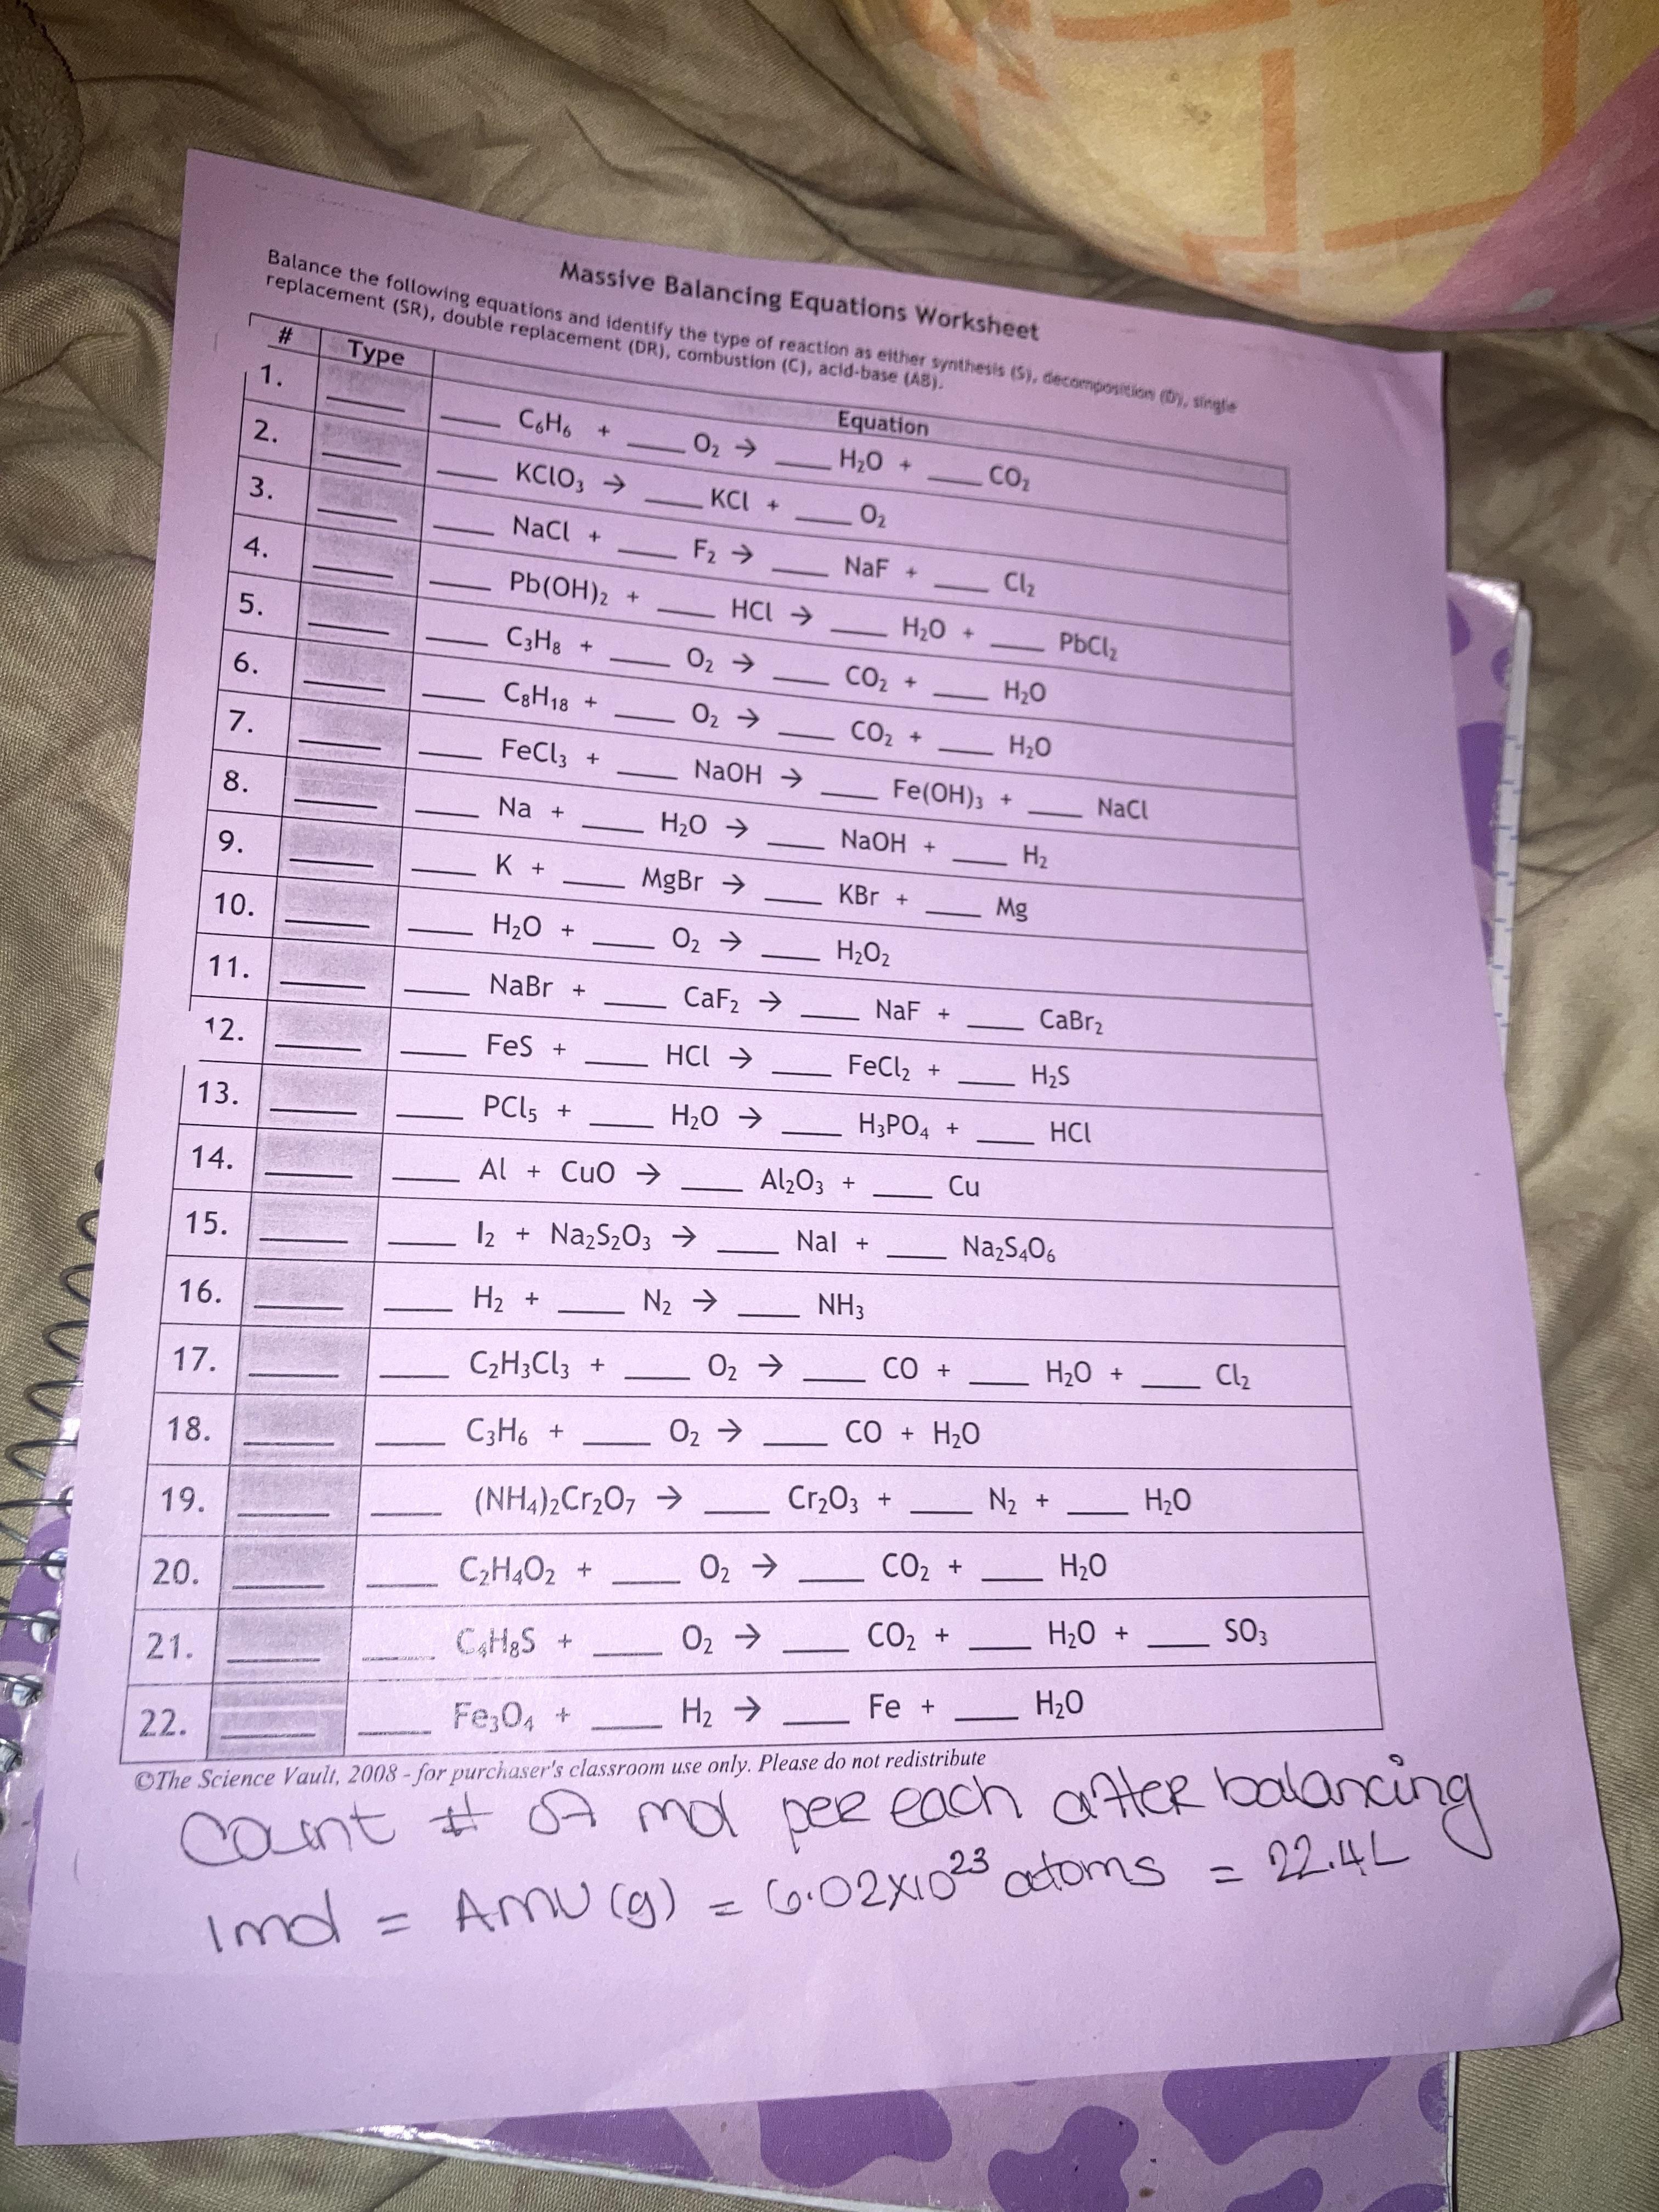 Massive Balancing Equations Worksheet
Balance the following equations and identify the type of reaction as either synthesis (S), decomposition (D), single
replacement (SR), double replacement (DR), combustion (C), acid-base (AB).
# Type Equation
1. ____ ____ C₆H₆ + ____ O₂ → ____ H₂O + ____ CO₂
2. ____ ____ KClO₃ → ____ KCl + ____ O₂
3. ____ ____ NaCl + ____ F₂ → ____ NaF + ____ Cl₂
4. ____ ____ Pb(OH)₂ + ____ HCl → ____ H₂O + ____ PbCl₂
5. ____ ____ C₃H₈ + ____ O₂ → ____ CO₂ + ____ H₂O
6. ____ ____ C₈H₁₈ + ____ O₂ → ____ CO₂ + ____ H₂O
7. ____ ____ FeCl₃ + ____ NaOH → ____ Fe(OH)₃ + ____ NaCl
8. ____ ____ Na + ____ H₂O → ____ NaOH + ____ H₂
9. ____ ____ K + ____ MgBr → ____ KBr + ____ Mg
10. ____ ____ H₂O + ____ O₂ → ____ H₂O₂
11. ____ ____ NaBr + ____ CaF₂ → ____ NaF + ____ CaBr₂
12. ____ ____ FeS + ____ HCl → ____ FeCl₂ + ____ H₂S
13. ____ ____ PCl₅ + ____ H₂O → ____ H₃PO₄ + ____ HCl
14. ____ ____ Al + CuO → ____ Al₂O₃ + ____ Cu
15. ____ ____ I₂ + Na₂S₂O₃ → ____ NaI + ____ Na₂S₄O₆
16. ____ ____ H₂ + ____ N₂ → ____ NH₃
17. ____ ____ C₂H₃Cl₃ + ____ O₂ → ____ CO + ____ H₂O + ____ Cl₂
18. ____ ____ C₃H₆ + ____ O₂ → ____ CO + H₂O
19. ____ ____ (NH₄)₂Cr₂O₇ → ____ Cr₂O₃ + ____ N₂ + ____ H₂O
20. ____ ____ C₂H₄O₂ + ____ O₂ → ____ CO₂ + ____ H₂O
21. ____ ____ C₄H₈S + ____ O₂ → ____ CO₂ + ____ H₂O + ____ SO₃
22. ____ ____ Fe₃O₄ + ____ H₂ → ____ Fe + ____ H₂O
©The Science Vault, 2008 - for purchaser's classroom use only. Please do not redistribute
Count # of mol per each after balancing
1mol = AMU (g) = 6.02X10²³ atoms = 22.4L